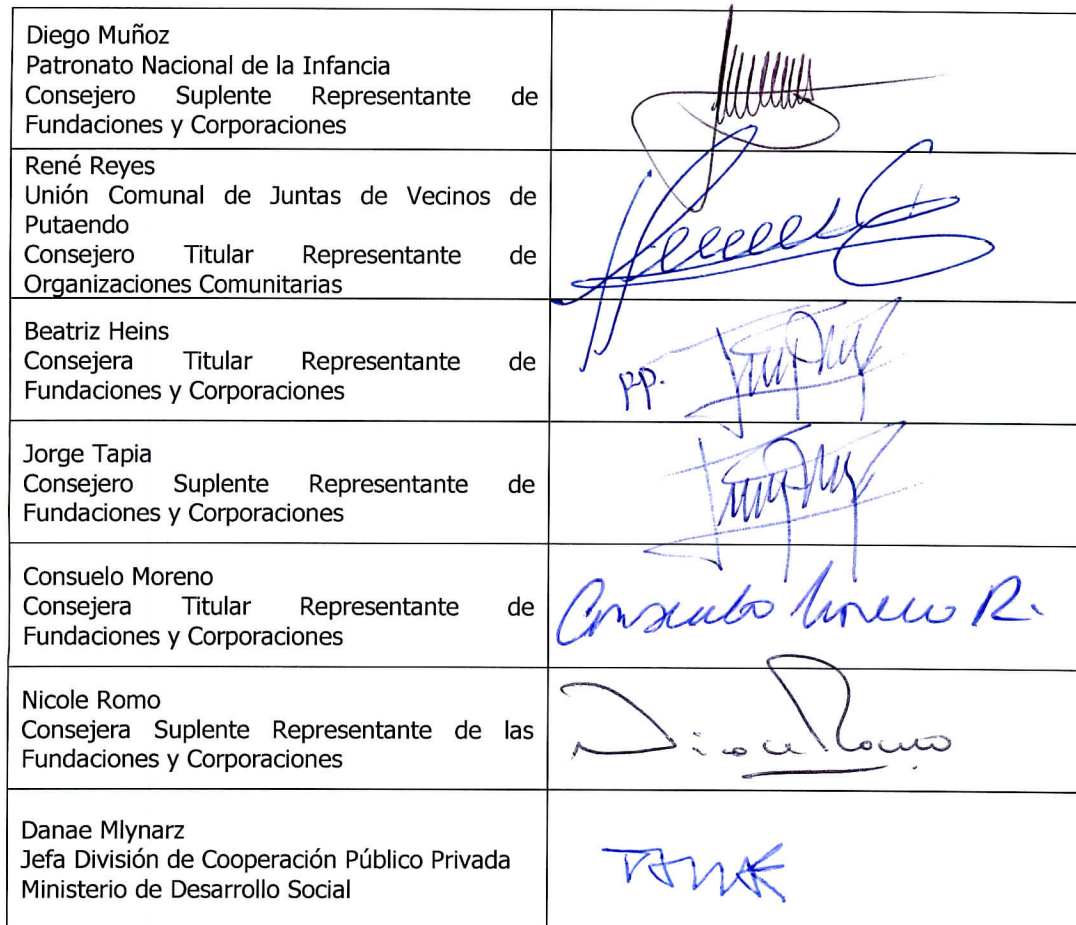 Diego Muñoz
Patronato Nacional de la Infancia
Consejero Suplente Representante de
Fundaciones y Corporaciones
René Reyes
Unión Comunal de Juntas de Vecinos de
Putaendo
Consejero Titular Representante de
Organizaciones Comunitarias
Beatriz Heins
Consejera Titular Representante de
Fundaciones y Corporaciones
pp.
Jorge Tapia
Consejero Suplente Representante de
Fundaciones y Corporaciones
Consuelo Moreno
Consejera Titular Representante de
Fundaciones y Corporaciones
Consuelo Moreno R.
Nicole Romo
Consejera Suplente Representante de las
Fundaciones y Corporaciones
Nicole Romo
Danae Mlynarz
Jefa División de Cooperación Público Privada
Ministerio de Desarrollo Social